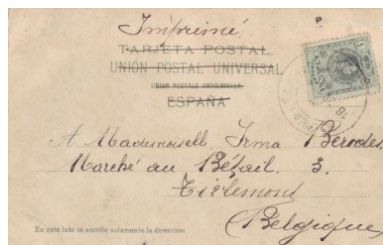 Imprimé
TARJETA POSTAL
UNIÓN POSTAL UNIVERSAL
UNION POSTALE UNIVERSELLE
ESPAÑA
A Mademoisell Irma
Marché au Bétail. 3.
Tirlemont
(Belgique)
En este lado se escribe solamente la dirección.